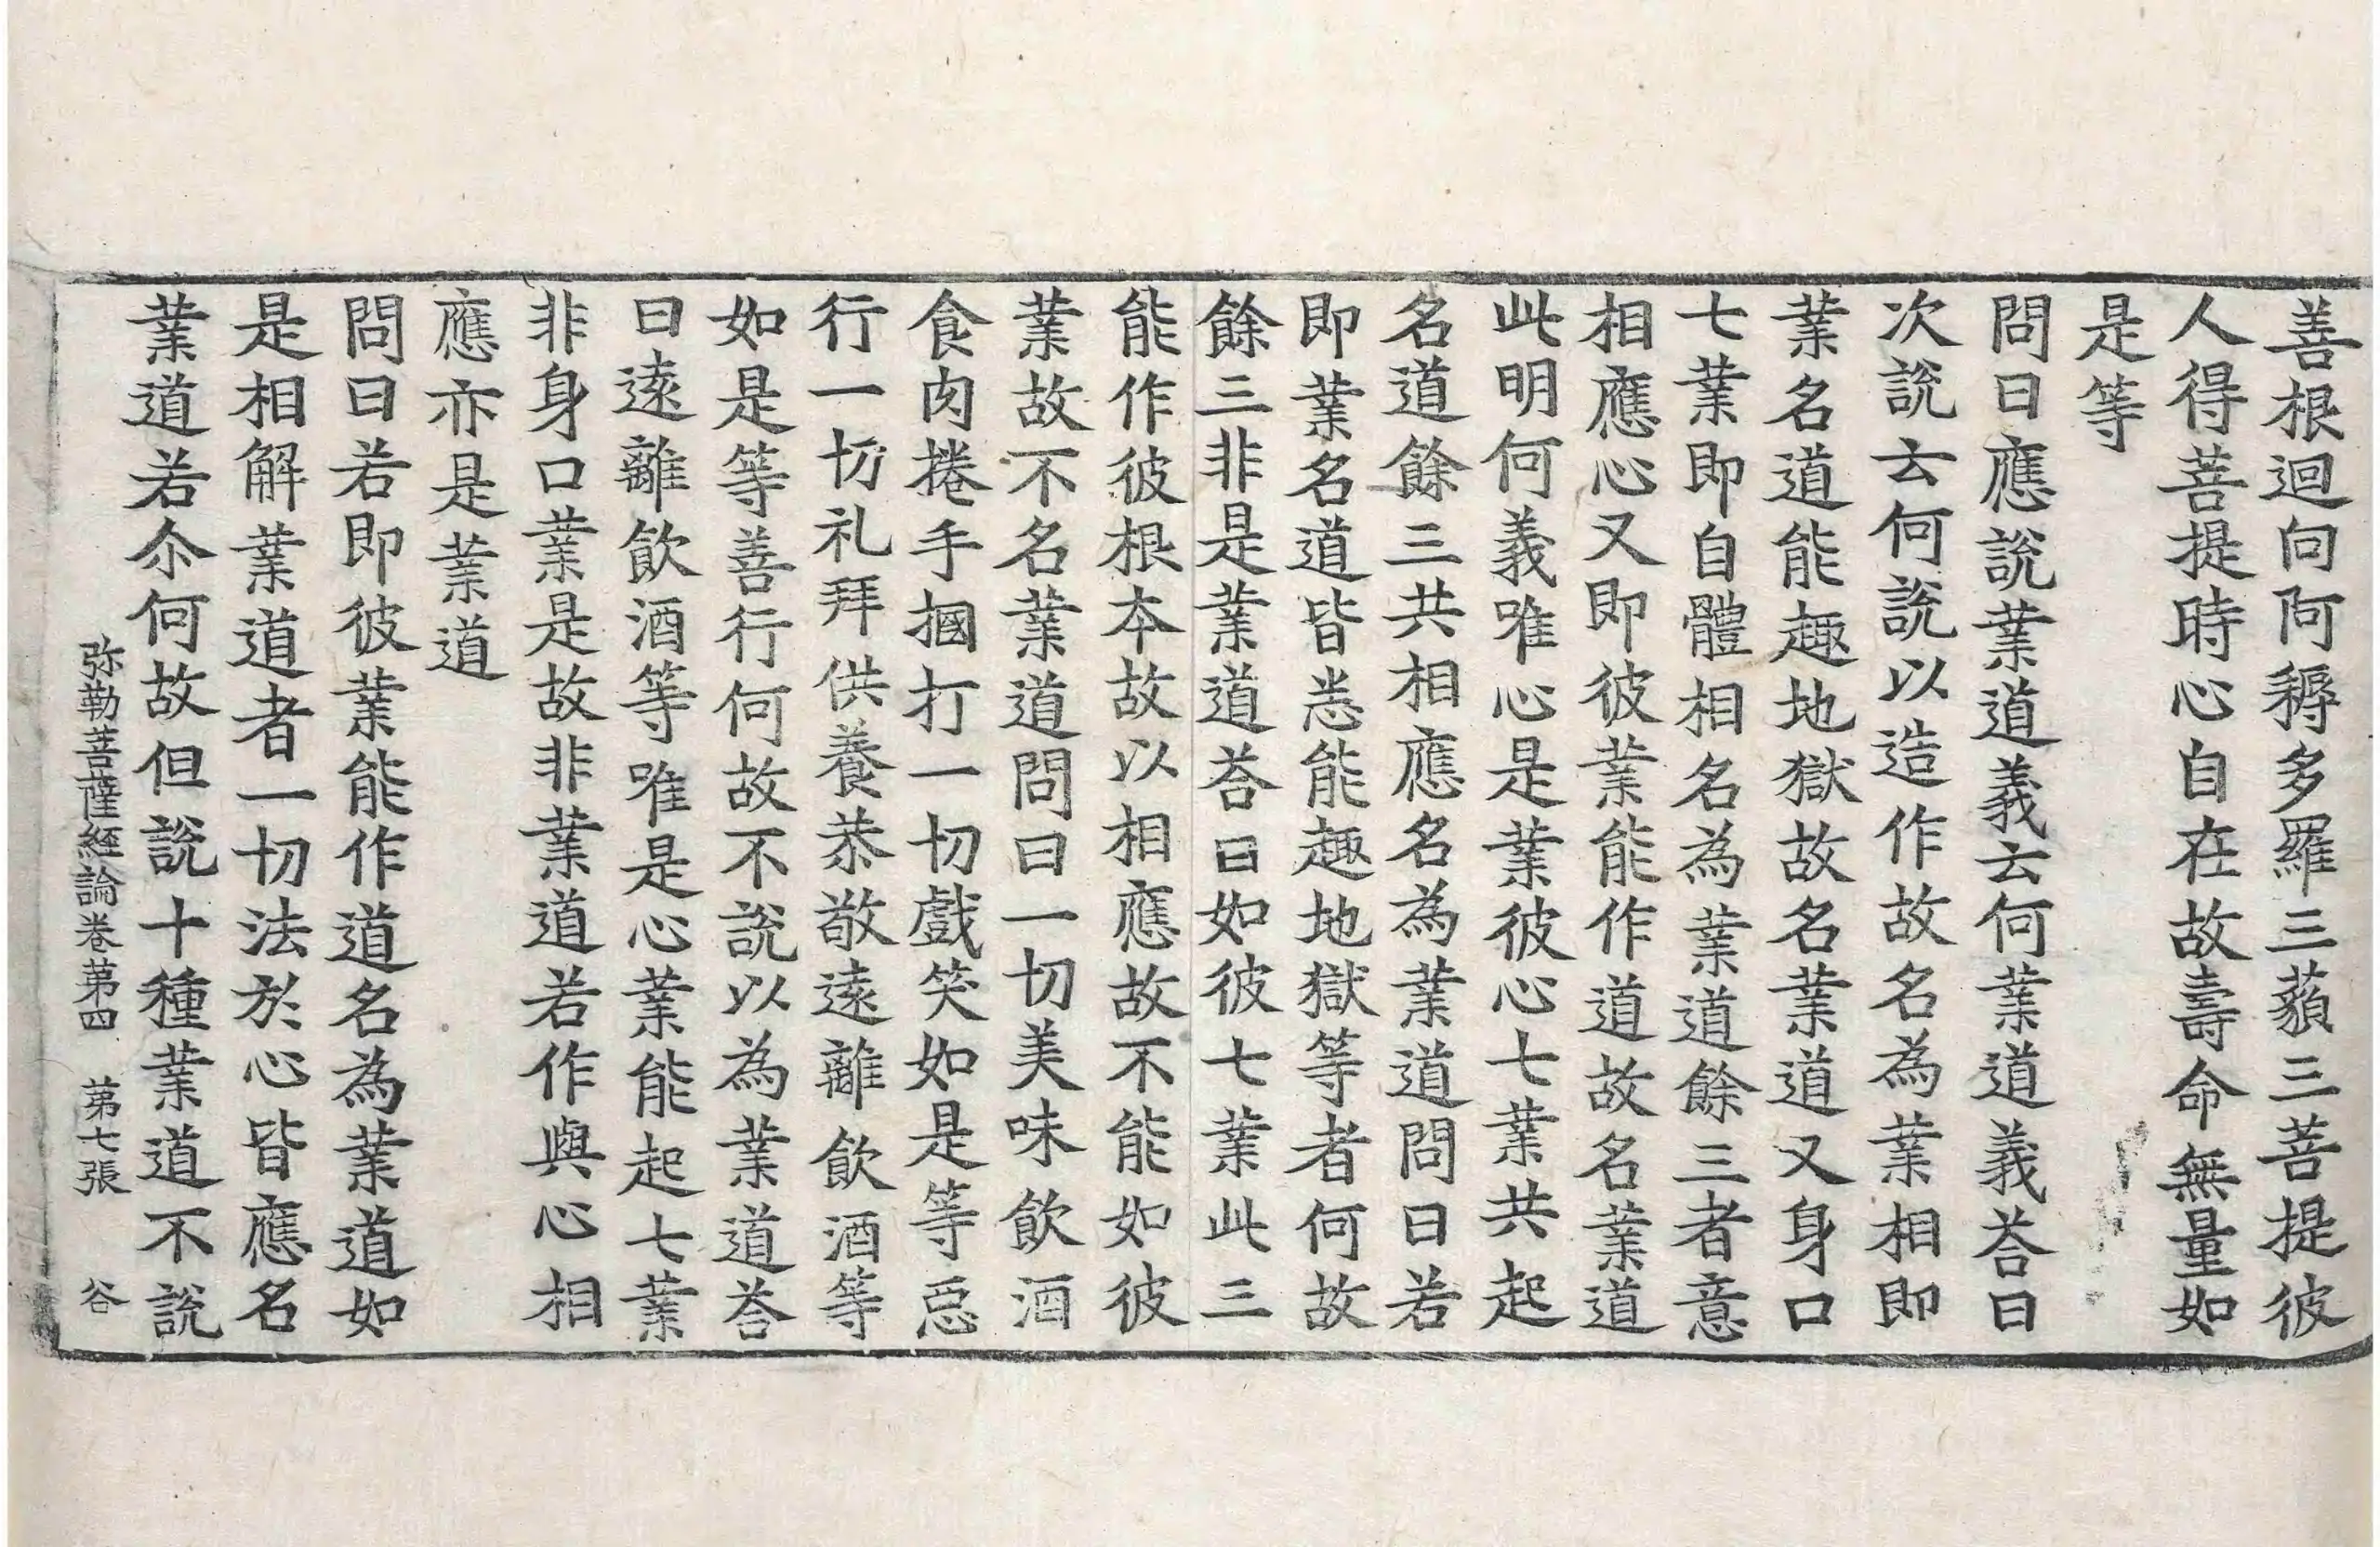 善根迴向阿耨多羅三藐三菩提彼
人得菩提時心自在故壽命無量如
是等
問曰應說業道義云何業道義荅曰
次說云何說以造作故名為業相即
業名道能趣地獄故名業道又身口
七業即自體相名為業道餘三者意
相應心又即彼業能作道故名業道
此明何義唯心是業彼心七業共起
名道餘三共相應名為業道問曰若
即業名道皆悉能趣地獄等者何故
餘三非是業道荅曰如彼七業此三
能作彼根本故以相應故不能如彼
業故不名業道問曰一切美味飲酒
食肉捲手摑打一切戲笑如是等惡
行一切礼拜供養恭敬遠離飲酒等
如是等善行何故不說以為業道荅
曰遠離飲酒等唯是心業能起七業
非身口業是故非業道若作與心相
應亦是業道
問曰若即彼業能作道名為業道如
是相解業道者一切法於心皆應名
業道若尒何故但說十種業道不說
弥勒菩薩經論卷第四 第七張 谷